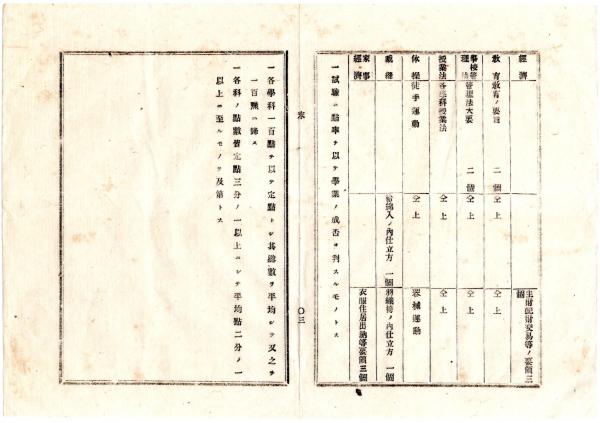 經濟 主財配財交易等ノ要領三個
教育 教育ノ要旨 二個 仝上 仝上
學校管理法 管理法大要 二個 仝上 仝上
授業法 各學科授業法 仝上 仝上
体操 徒手運動 仝上 器械運動
裁縫 綿入ノ內仕立方 一個 羽織袴ノ內仕立方 一個
家事經濟 衣服住居出納等要領三個
一試驗ハ點率ヲ以テ學業ノ成否ヲ判スルモノトス
〇三
一各學科一百點ヲ以テ定點トシ其總數ヲ平均シテ又之ヲ
一百點ニ歸ス
一各科ノ點數皆定點三分ノ一以上ニシテ平均點二分ノ一
以上ニ至ルモノヲ及第トス